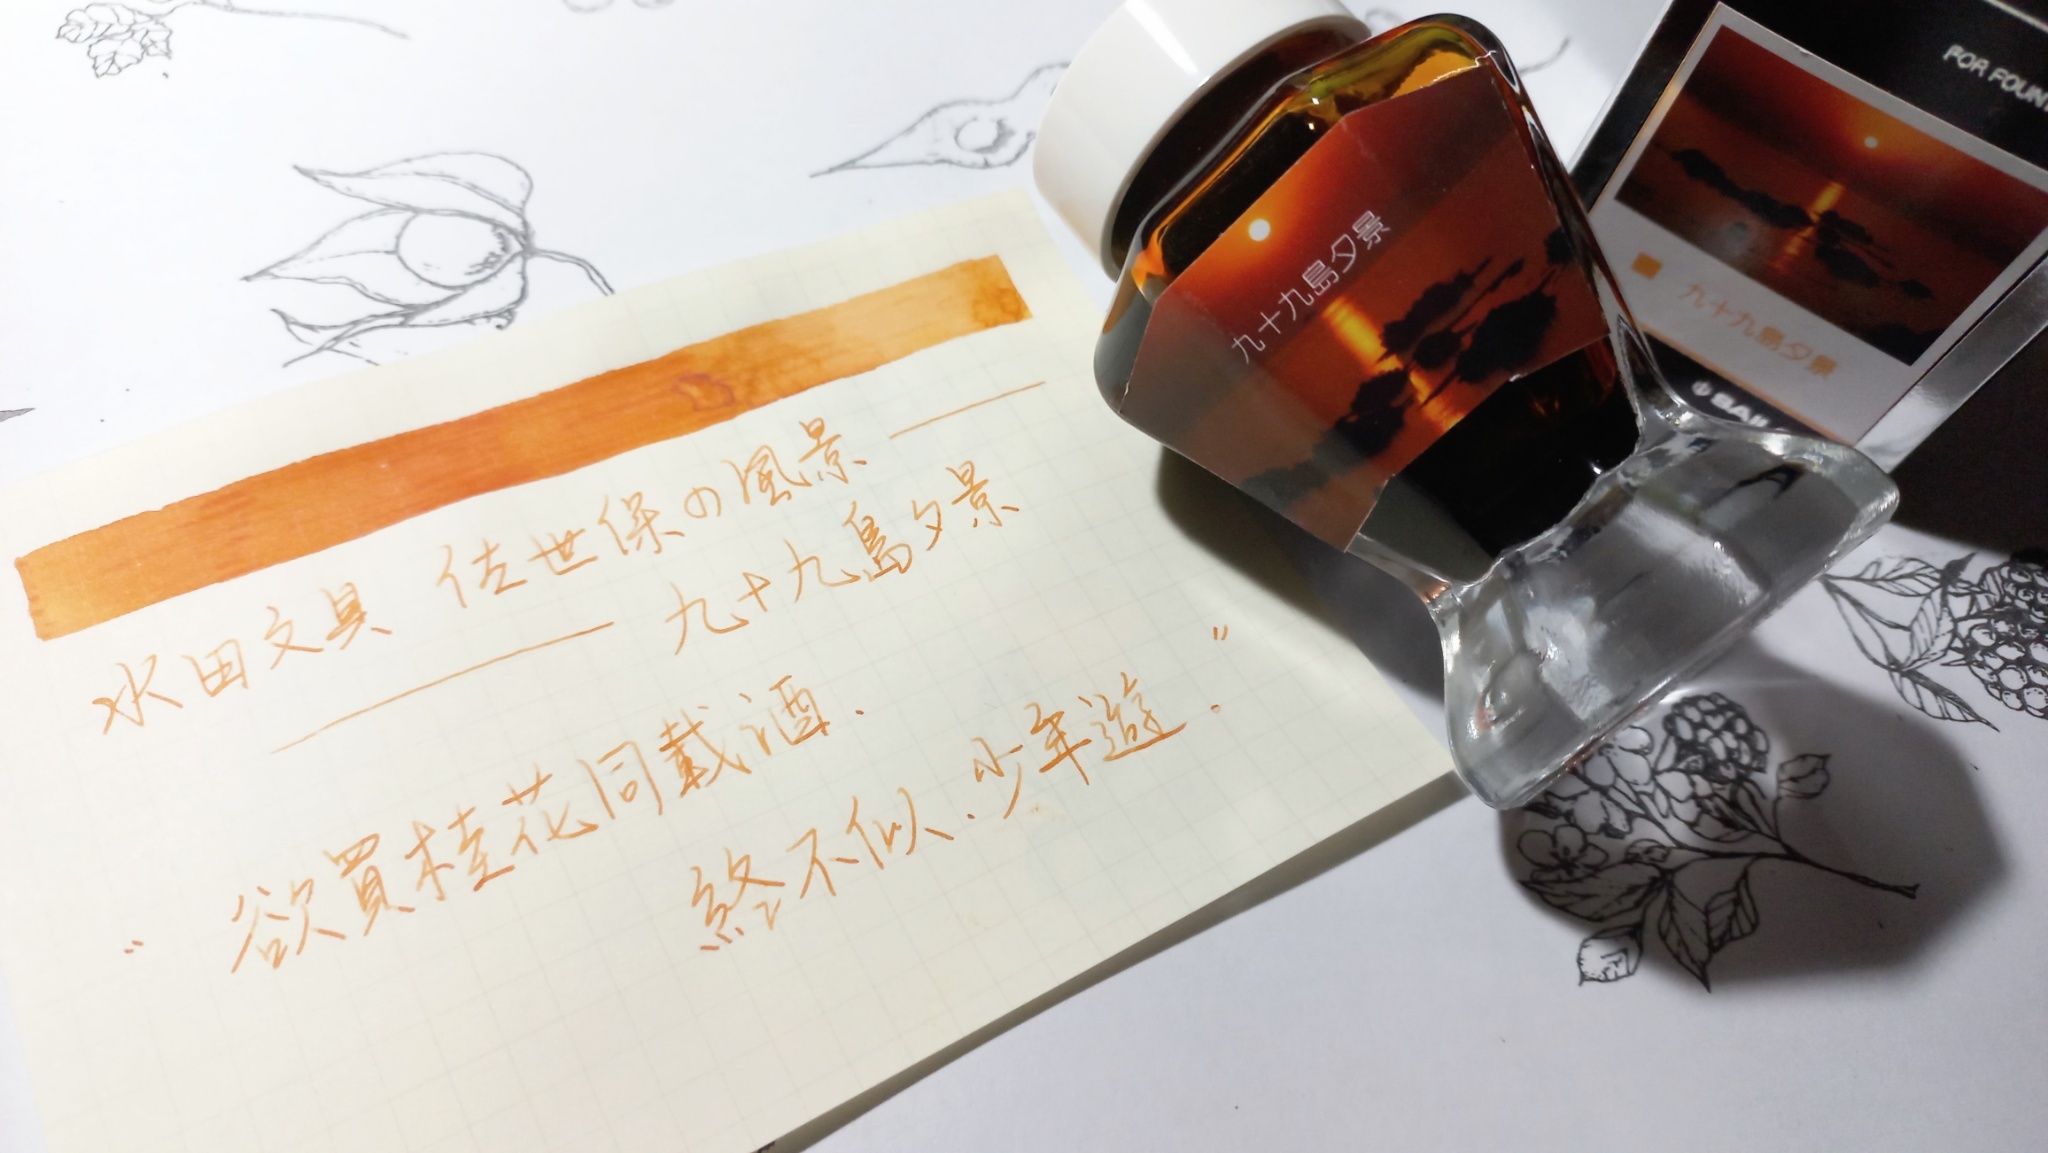 水田文具 佐世保の風景——
——九十九島夕景
"欲買桂花同載酒.
終不似.少年遊."
九十九島夕景
FOR FOUNT
九十九島夕景
SAIL